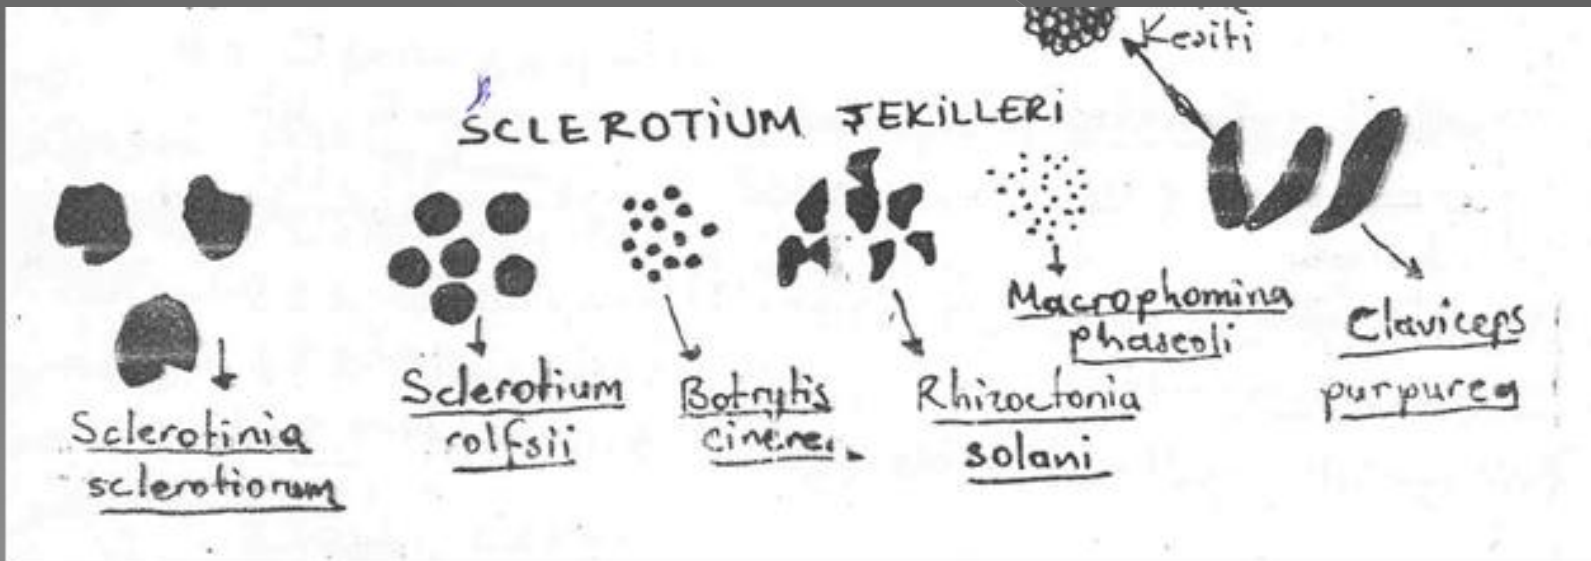 Kesiti
SCLEROTİUM ŞEKİLLERİ
Sclerotinia
sclerotiorum
Sclerotium
rolfsii
Botrytis
Rhizoctonia
solani
Macrophomina
phaseoli
Claviceps
purpurea